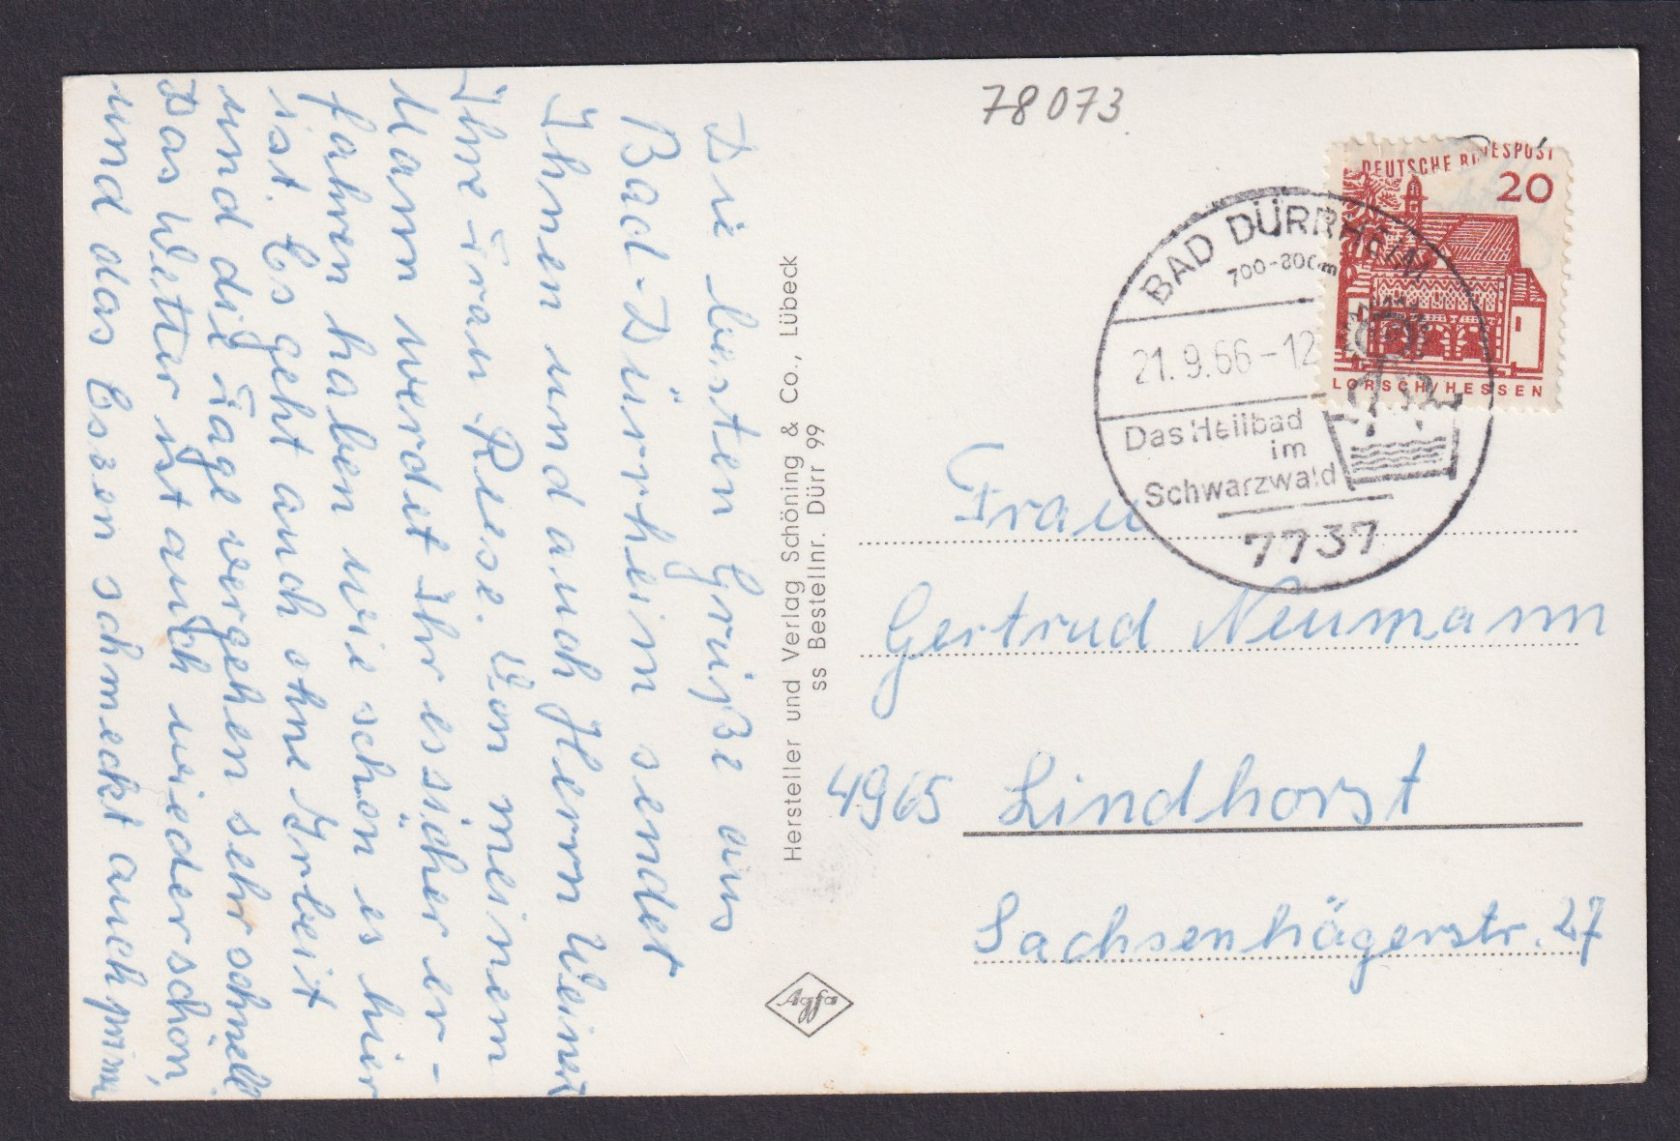 Die besten Grüße aus
Bad-Dürrheim sendet
Ihnen und auch Herrn Weiner
Ihre Frau Riese. Von meinem
Mann werdet Ihr es sicher er-
fahren haben wie schön es hier
ist. Es geht auch ohne Arbeit
und die Tage vergehen sehr schnell
Das Wetter ist auch wieder schön,
und das Essen schmeckt auch prima
Hersteller und Verlag Schöning & Co., Lübeck
ss Bestellnr. Dürr 99
Agfa
78073
DEUTSCHE BUNDESPOST
20
LORSCH/HESSEN
BAD DÜRRHEIM
700-800m
21.9.66-12
Das Heilbad
im
Schwarzwald
7737
Frau
Gertrud Neumann
4965 Lindhorst
Sachsenhägerstr. 27